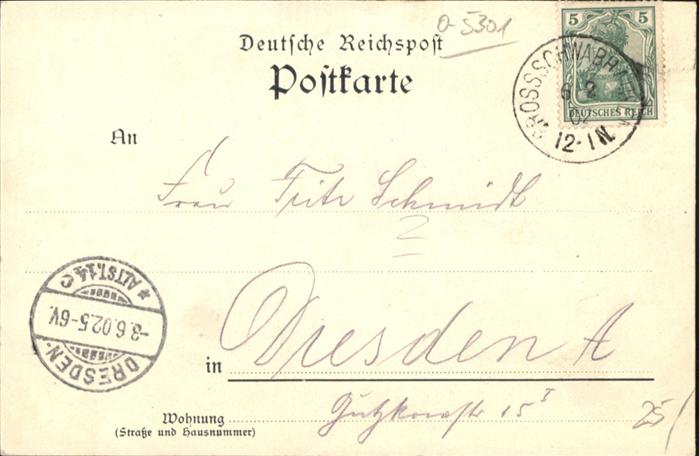 o-5301
Deutsche Reichspost
Postkarte
5 5
DEUTSCHES REICH
GROSSSCHWABHAUSEN
6 2
02
12-1 N.
An
Frau Fritz Schmidt
in Dresden A
Gutzkowstr 15 I
Wohnung
(Straße und Hausnummer)
25/
DRESDEN-
-3.6.02.5-6V.
* ALTST.14 C